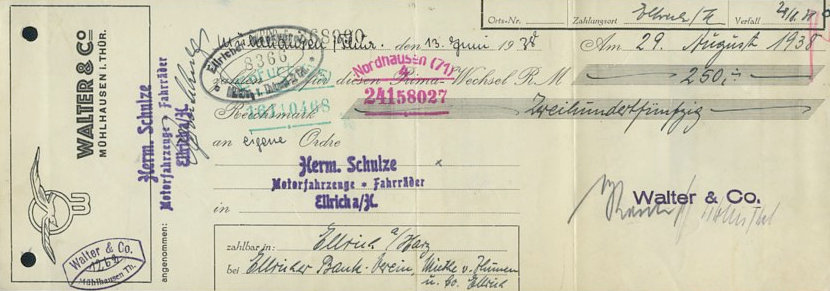 Orts-Nr. Zahlungsort Ellrich/H Verfall
Mühlhausen/Thür. den 13. Juni 1938 Am 29. August 1938
diesen Prima-Wechsel R.M. 250,-
Reichsmark Zweihundertfünfzig
an eigene Ordre
Herm. Schulze
Motorfahrzeuge * Fahrräder
Ellrich a/H.
in
zahlbar in: Ellrich a/Harz
bei Ellricher Bank-Verein,
u. Co. Ellrich
Walter & Co.
WALTER & Co
MÜHLHAUSEN I. THÜR.
W
Walter & Co.
1264
Mühlhausen Th.
angenommen:
Herm. Schulze
Motorfahrzeuge * Fahrräder
Ellrich a/H.
8366
368090
16110468
Nordhausen (71)
24158027